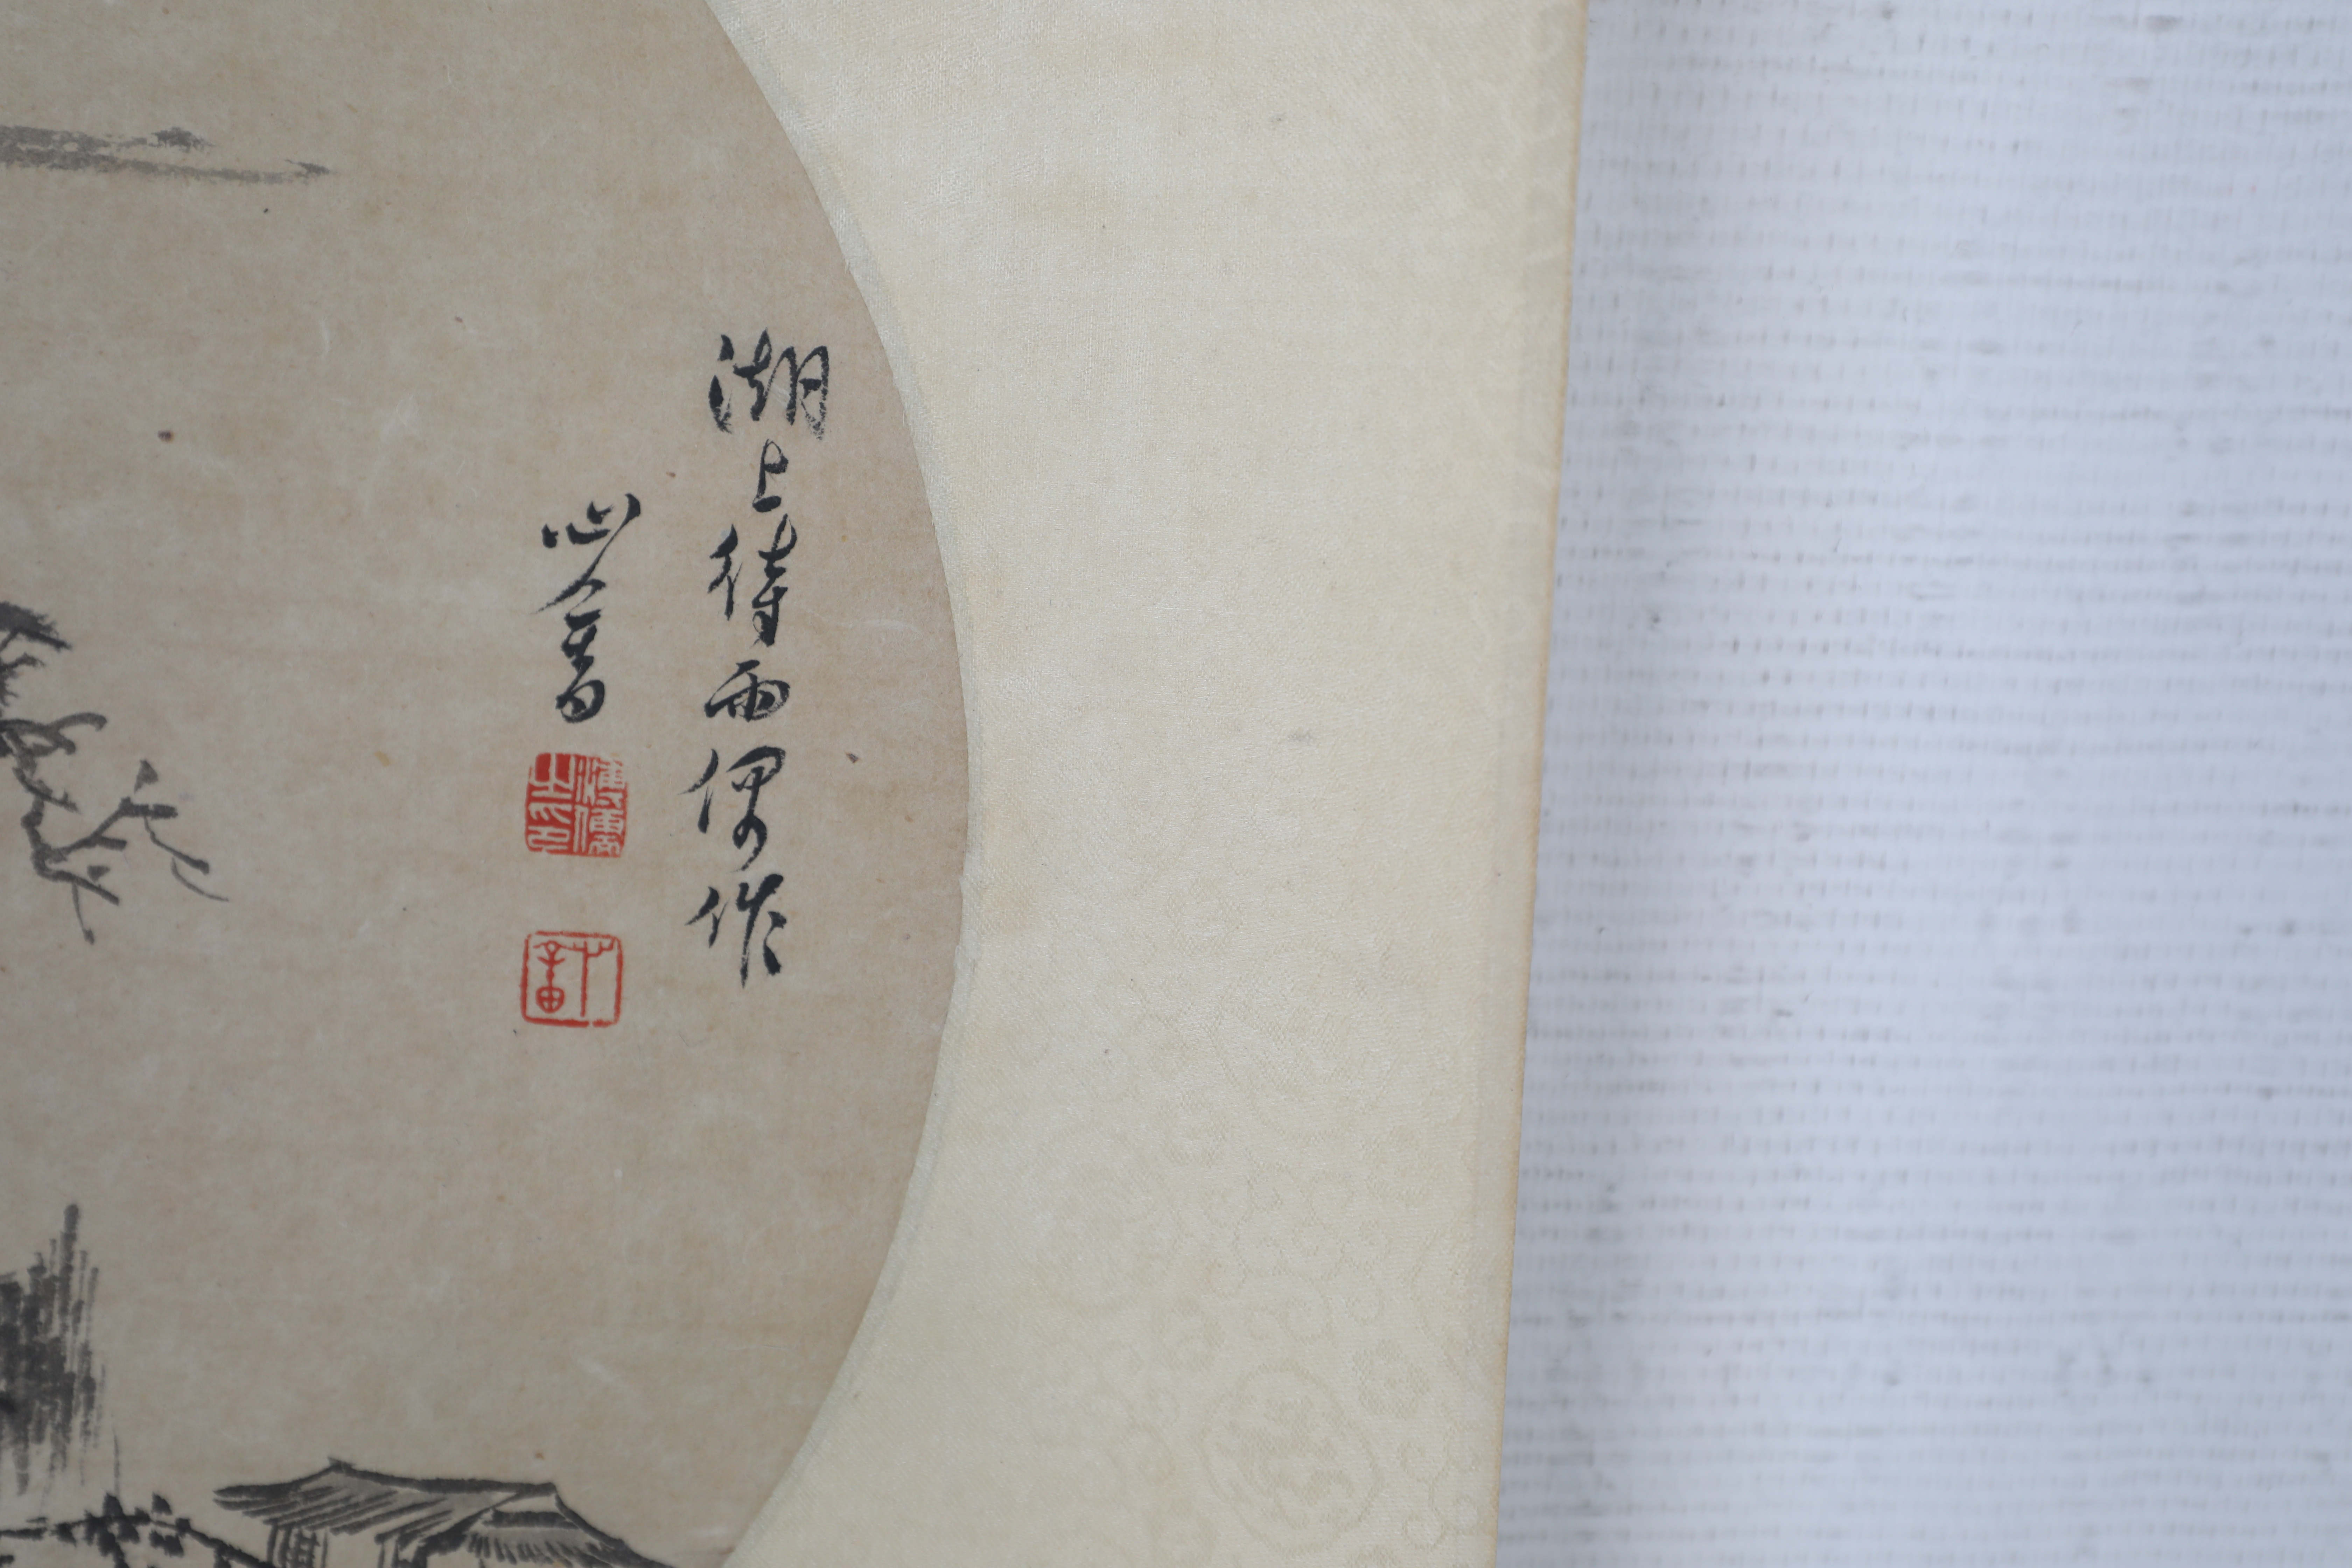 湖上待雨偶作
心畬
溥儒之印